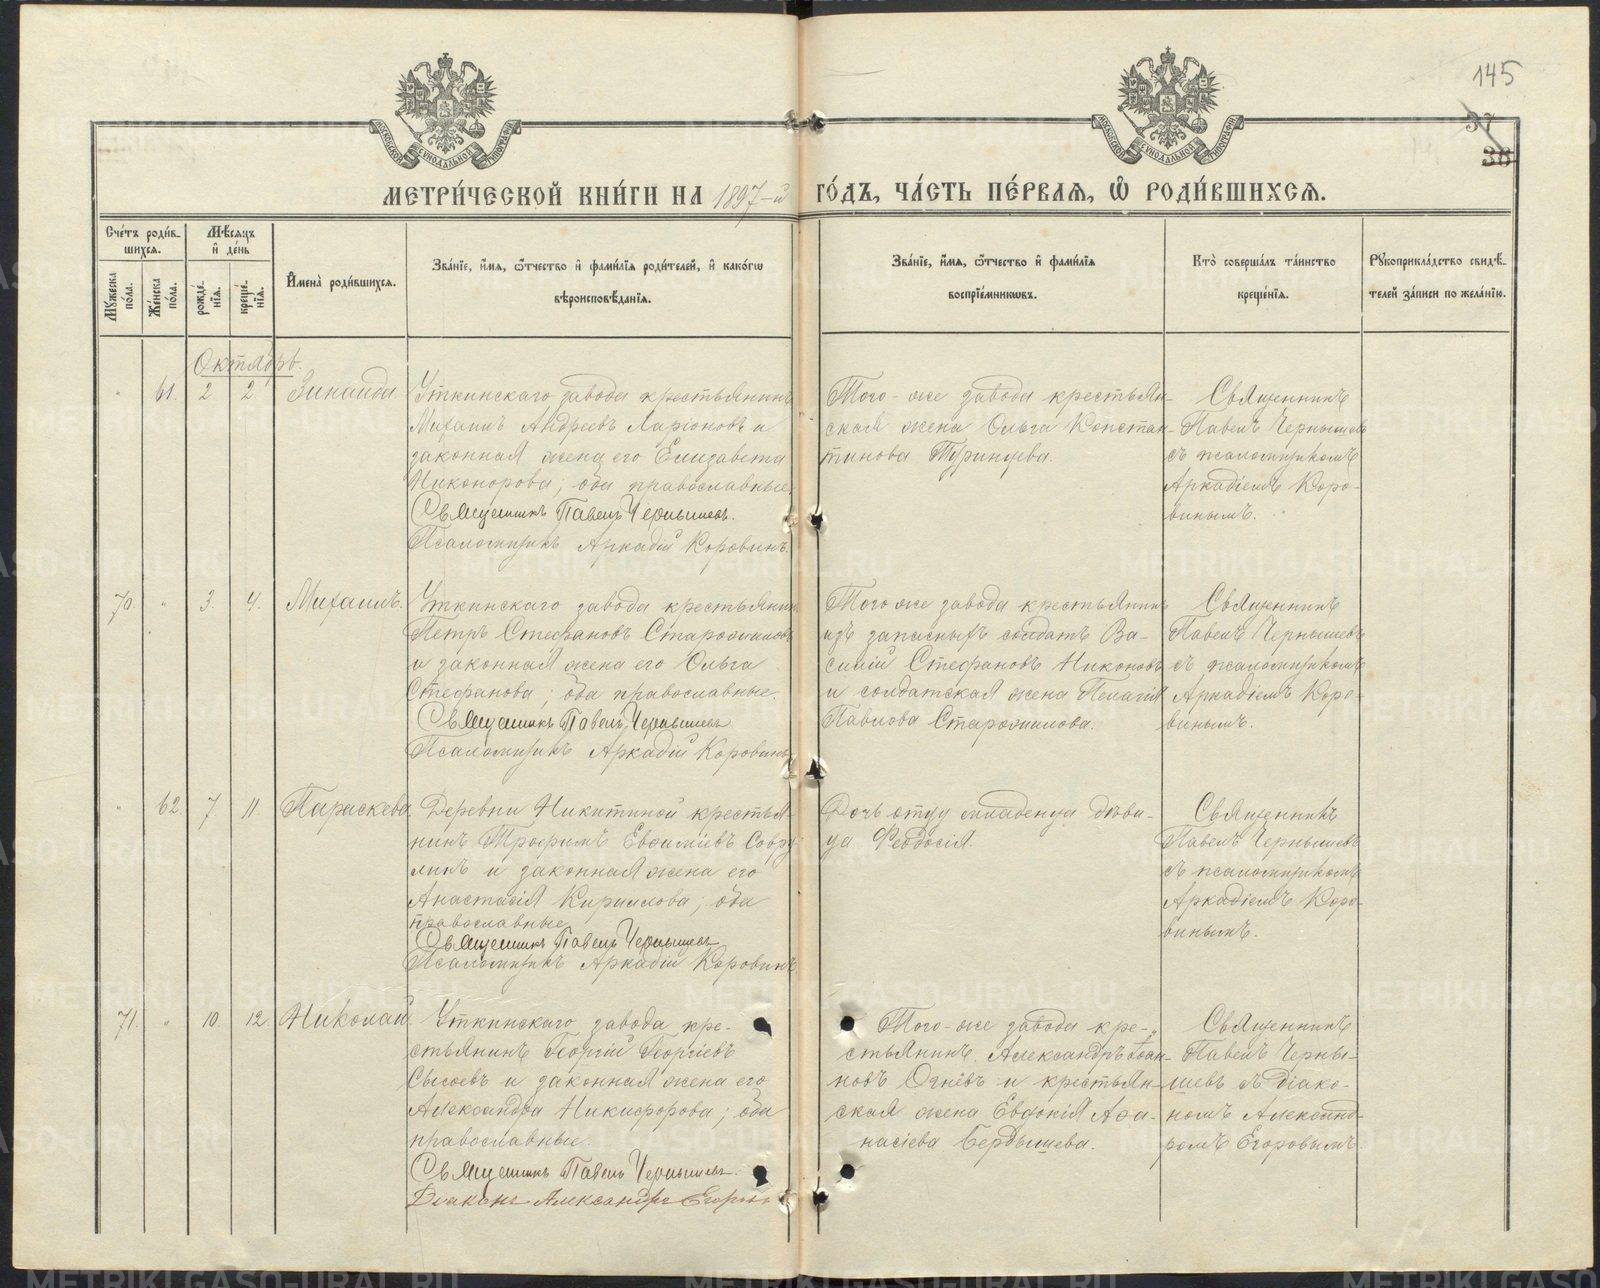 145
37
38
МОСКОВСКОЙ СѴНОДАЛЬНОЙ ТИПОГРАФІИ
МОСКОВСКОЙ СѴНОДАЛЬНОЙ ТИПОГРАФІИ
МЕТРИ́ЧЕСКОЙ КНИ́ГИ НА 1897-й ГО́ДЪ, ЧА́СТЬ ПЕ́РВАЯ, Ѡ҆ РОДИ́ВШИХСЯ.
Сче́тъ роди́в-
шихся.
Мѣ́сяцъ
и҆ де́нь
Мꙋ́жеска
по́ла.
Же́нска
по́ла.
рожде́-
нїѧ.
креще́-
нїѧ.
И҆мена̀ роди́вшихся.
Зва́нїе, и҆́мя, ѻ҆́тчество и҆ фами́лїя роди́телей, и҆ како́гѡ
вѣроисповѣ́данїя.
Зва́нїе, и҆́мя, ѻ҆́тчество и҆ фами́лїя
воспрїе́мникѡвъ.
Кто̀ соверша́лъ та́инство
креще́нїя.
Рꙋкоприкла́дство свидѣ́-
телей за́писи по жела́нїю.
Октябрь.
" 61. 2 2 Зинаида
Уткинскаго завода крестьянинъ
Михаилъ Андреевъ Ларіоновъ и
законная жена его Елизавета
Никонорова; оба православные.
Священникъ Павелъ Чернышевъ.
Псаломщикъ Аркадій Коровинъ.
Того-же завода крестьян-
ская жена Ольга Констан-
тинова Туринцева.
Священникъ
Павелъ Чернышевъ
съ псаломщикомъ
Аркадіемъ Коро-
винымъ.
70. " 3. 4. Михаилъ.
Уткинскаго завода крестьянинъ
Петръ Стефановъ Старожиловъ
и законная жена его Ольга
Стефанова; оба православные.
Священникъ Павелъ Чернышевъ
Псаломщикъ Аркадій Коровинъ
Того же завода крестьянинъ
изъ запасныхъ солдатъ Ва-
силій Стефановъ Никоновъ
и солдатская жена Пелагія
Павлова Старожилова.
Священникъ
Павелъ Чернышевъ
съ псаломщикомъ
Аркадіемъ Коро-
винымъ.
" 62. 7 11 Параскева.
Деревни Никитиной крестья-
нинъ Трофимъ Евфиміевъ
и законная жена его
Анастасія Кириллова; оба
православные
Священникъ Павелъ Чернышевъ
Псаломщикъ Аркадій Коровинъ
Дочь отцу младенца дѣви-
ца Феодосія.
Священникъ
Павелъ Чернышевъ
съ псаломщикомъ
Аркадіемъ Коро-
винымъ.
71. " 10 12 Николай.
Уткинскаго завода кре-
стьянинъ Георгій Георгіевъ
Сысоевъ и законная жена его
Александра Никифорова; оба
православные.
Священникъ Павелъ Чернышевъ.
Діаконъ Александръ Егоровъ
Того-же завода кре-
стьянинъ Александръ Іоан-
новъ Огнёвъ и крестьян-
ская жена Евдокія Афа-
насіева Бердышева.
Священникъ
Павелъ Черны-
шевъ съ діако-
номъ Александ-
ромъ Егоровымъ.
METRIKI.GASO-URAL.RU